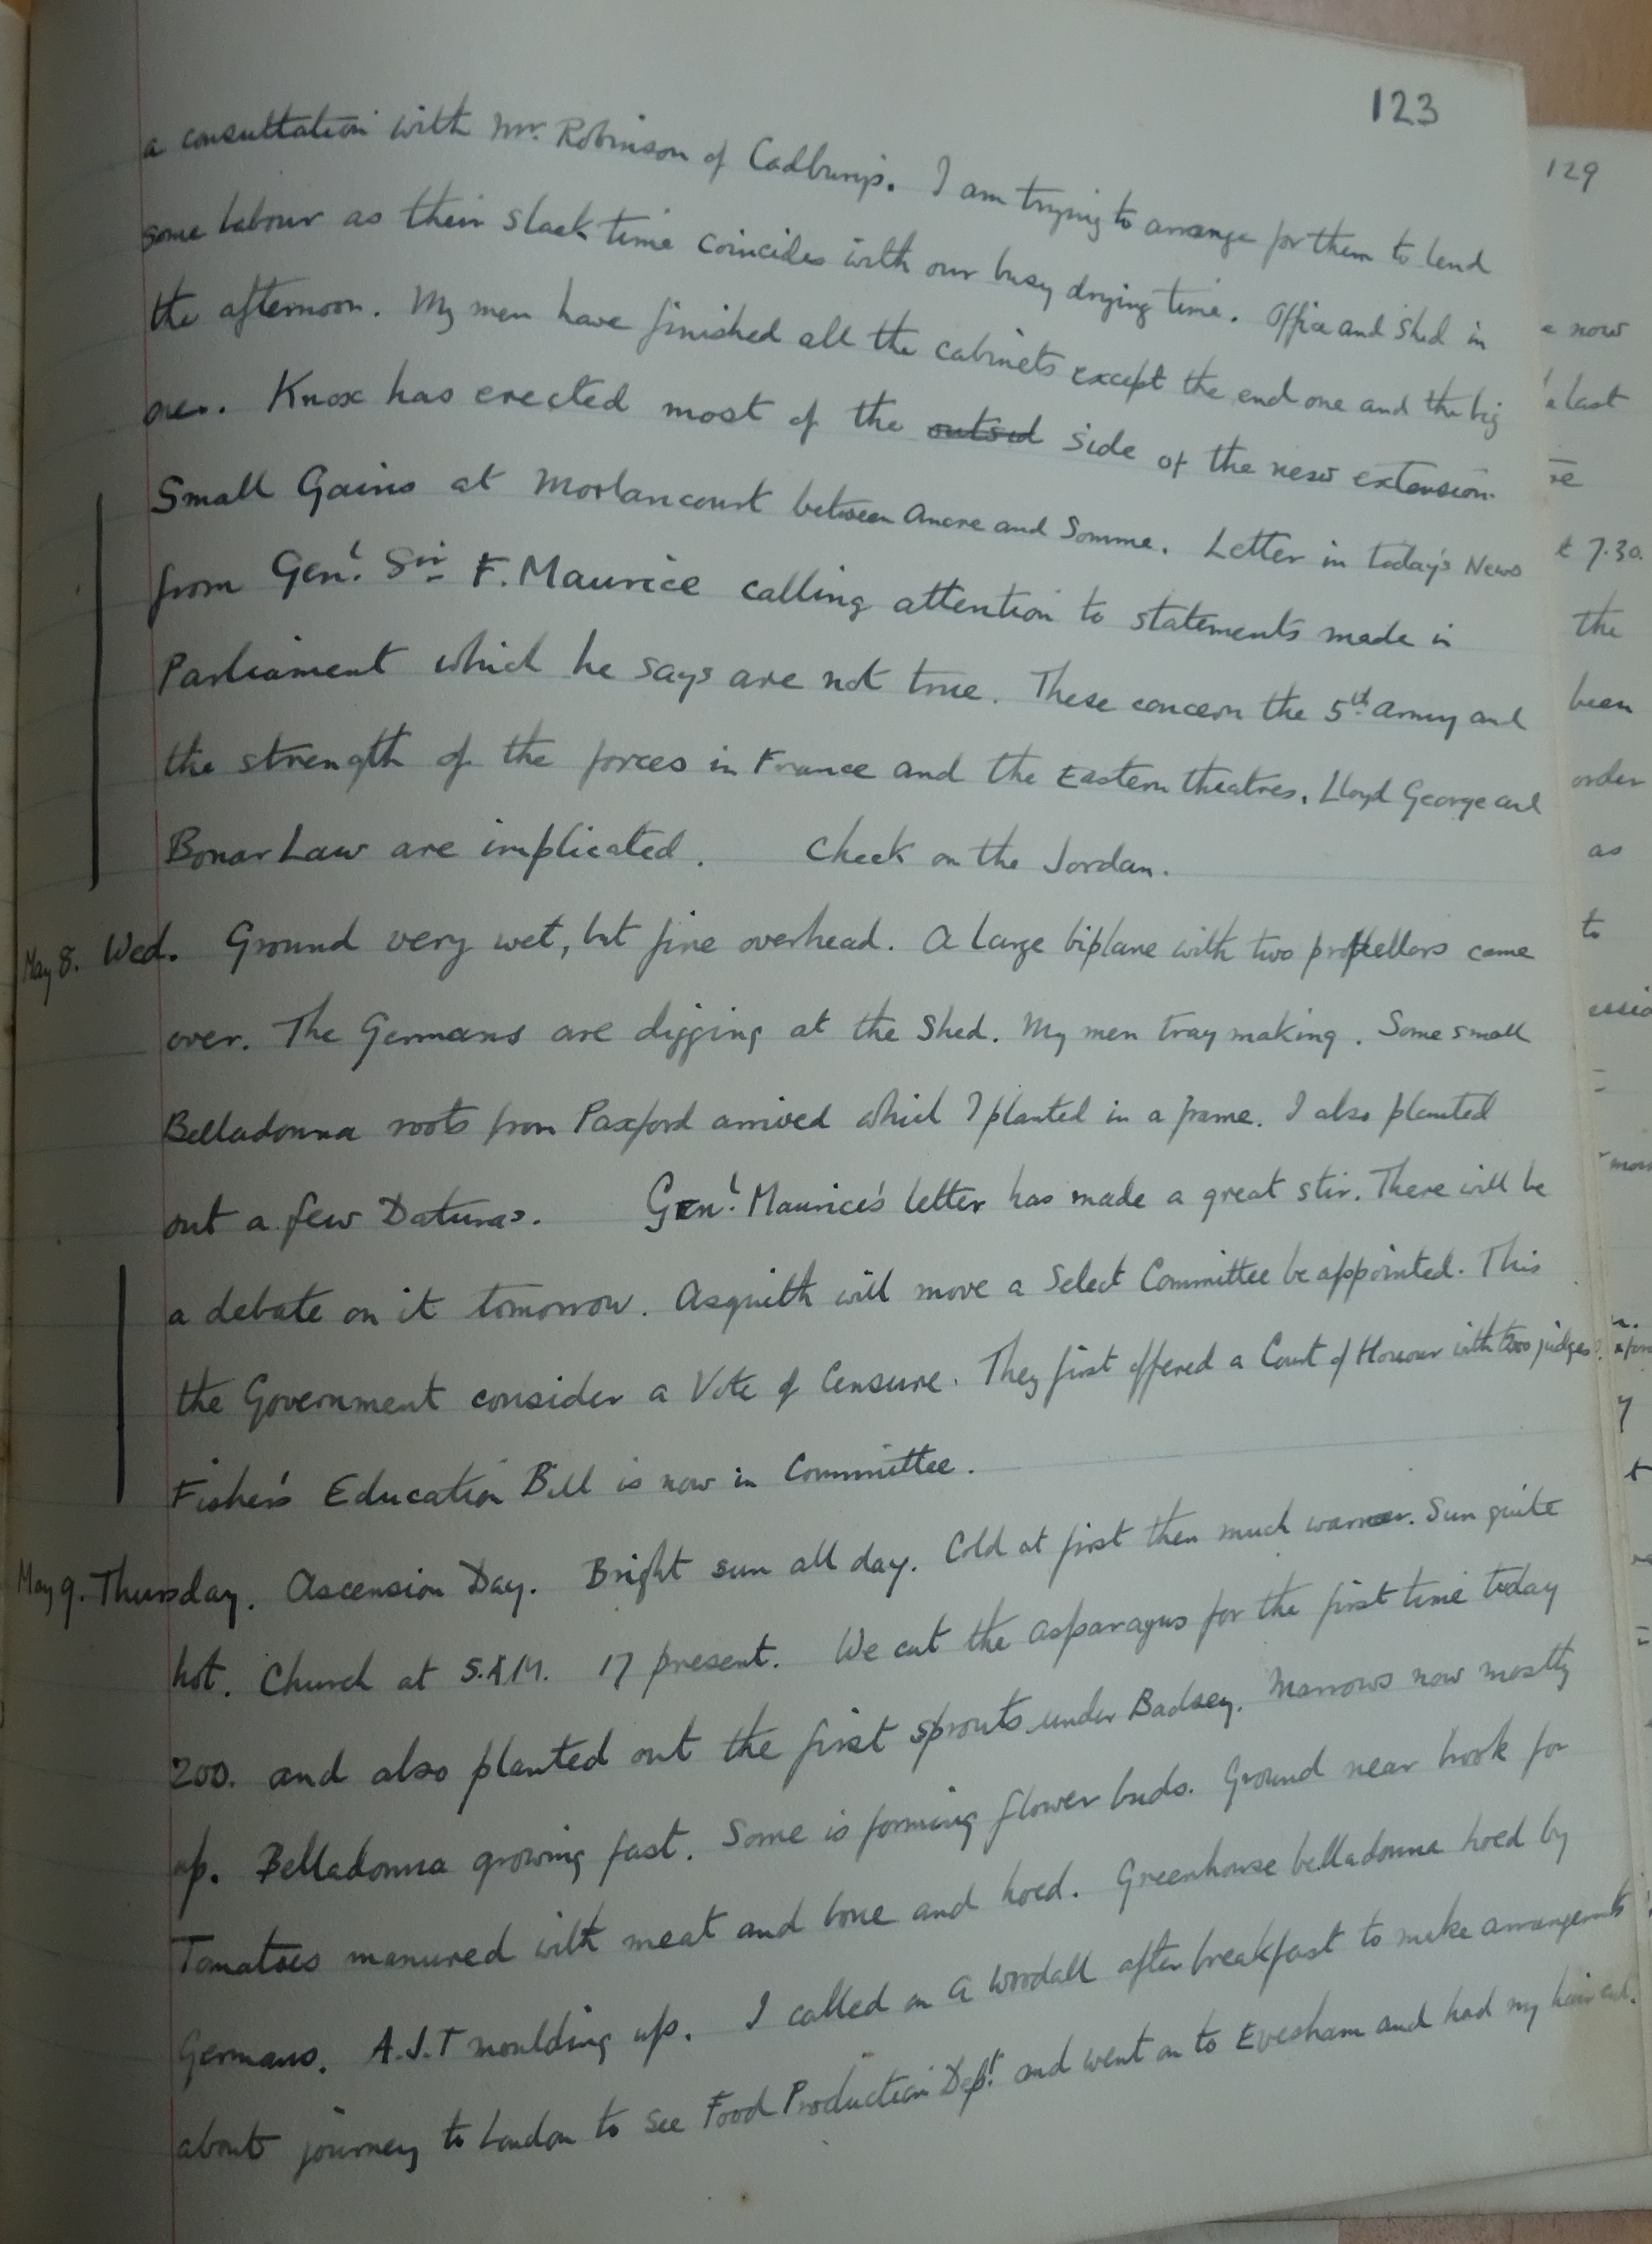 123
a consultation with Mr. Robinson of Cadburys. I am trying to arrange for them to lend
some labour as their slack time coincides with our busy drying time. Office and Shed in
the afternoon. My men have finished all the cabinets except the end one and the big
one. Knox has erected most of the outsid side of the new extension.
Small Gains at Morlancourt between Ancre and Somme. Letter in today's News
from Genl. Sir F. Maurice calling attention to statements made in
Parliament which he says are not true. These concern the 5th army and
the strength of the forces in France and the Eastern theatres. Lloyd George and
Bonar Law are implicated. Check on the Jordan.
May 8. Wed. Ground very wet, but fine overhead. A large biplane with two propellors came
over. The Germans are digging at the Shed. My men tray making. Some small
Belladonna roots from Paxford arrived which I planted in a frame. I also planted
out a few Daturas. Genl. Maurice's letter has made a great stir. There will be
a debate on it tomorrow. Asquith will move a Select Committee be appointed. This
the Government consider a Vote of Censure. They first offered a Court of Honour with two judges.
Fisher's Education Bill is now in Committee.
May 9. Thursday. Ascension Day. Bright sun all day. Cold at first then much warmer. Sun quite
hot. Church at 5.A.M. 17 present. We cut the asparagus for the first time today
200. and also planted out the first sprouts under Badsey. Marrows now mostly
up. Belladonna growing fast. Some is forming flower buds. Ground near brook for
Tomatoes manured with meat and bone and hoed. Greenhouse belladonna hoed by
Germans. A.J.T moulding up. I called on A Woodall after breakfast to make arrangements
about journey to London to see Food Production Dept. and went on to Evesham and had my hair cut.
129
now
last
t 7.30.
the
been
order
as
to